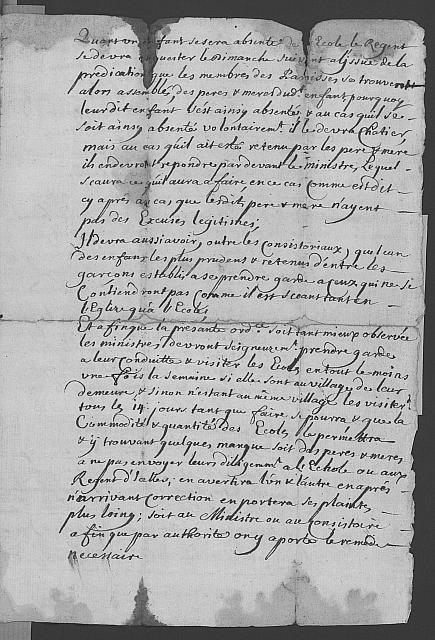 Quant un enfant se sera absenté de l'Ecole le Regent
se devra enquester le dimanche suivant a l'issue de la
predication que les membres des Paroisses se trouveront
alors assemblés, des peres & meres dud. enfant pourquoy
leurdit enfant l'est ainsy absenté & au cas quil se
soit ainsy absenté volontairemt. il le devra Chatier
mais au cas quil ait esté retenu par les pere & mere
ils en devront repondre par devant le ministre, Lequel
scaura ce quil aura a faire en ce cas comme est dit
cy apres au cas que lesdits pere & mere n'ayent
pas des Excuses legitimes;
Il devra aussi avoir, outre les Consistoriaux, quelcun
des enfans les plus prudent & retenus d'entre les
garcons establi a se prendre garde a ceux qui ne se
Contiendront pas comme il est sceant tant en
l'Eglise qu'a l'Ecole
Et afin que la presante ordce. soit tant mieux observée
les ministres devront seigneusemt. prendre garde
a leur conduitte & visiter les Ecoles en tout le moins
une fois la semaine si elle sont au village de leur
demeure, & sinon n'estant au même village les visiter
tous les 14 jours tant que faire se pourra & que la
Commodité & quantités des Ecoles le permettra
& y trouvant quelques manque soit des peres & meres
a ne pas envoyer leurs diligemmt. a l'Echole ou aux
Regent d'Icelles; en avertira l'un & l'autre en apres
n'arrivant correction en portera ses plaintes
plus loing; soit au Ministre ou au Consistoire
afin que par authorité on y aporte le remede
necessaire